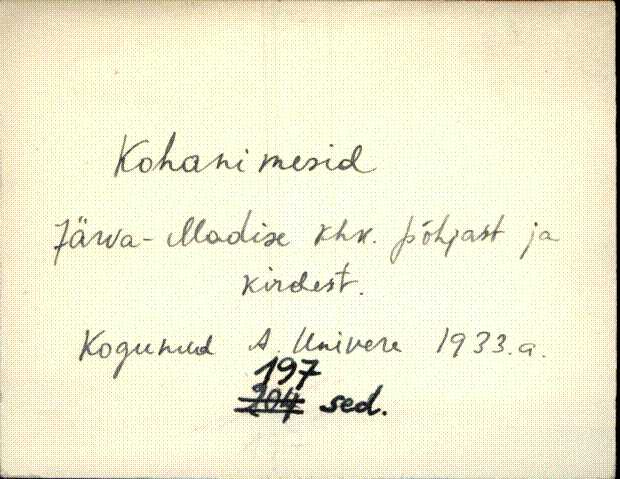 Kohanimesid
Järva-Madise khk. põhjast ja
kirdest.
Kogunud A. Univere 1933.a.
197
204 sed.